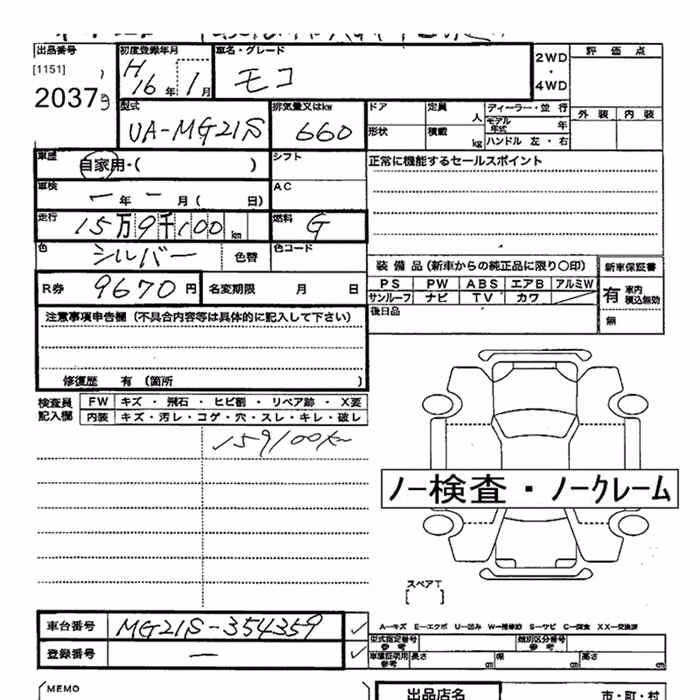 出品番号 初度登録年月 車名・グレード 2WD・4WD 評価点
[1151] H16年1月 モコ
2037
型式 排気量又はkw ドア 定員 人 ディーラー・並行 外装 内装
UA-MG21S 660 形状 積載 kg モデル年式 年
ハンドル 左・右
車歴 自家用・( ) シフト 正常に機能するセールスポイント
車検 ー年ー月( 日) AC
走行 15万9千100km 燃料 G
色 シルバー 色替 色コード
装備品(新車からの純正品に限り〇印) 新車保証書
R券 9670円 名変期限 月 日 PS PW ABS エアB アルミW 有 車内積込無効
サンルーフ ナビ TV カワ
注意事項申告欄(不具合内容等は具体的に記入して下さい) 後日品 無
修復歴 有 (箇所 )
検査員記入欄 FW キズ・飛石・ヒビ割・リペア跡・X要
内装 キズ・汚レ・コゲ・穴・スレ・キレ・破レ
159100km
ノー検査・ノークレーム
スペアT
[ ]
車台番号 MG21S-354359 ✓ A―キズ E―エクボ U―凹み W―補修跡 S―サビ C―腐食 XX―交換済
型式指定番号 参考 類別区分番号 参考
登録番号 ー ✓ 車庫証明用 参考 長さ cm 幅 cm 高さ cm
MEMO 出品店名 市・町・村